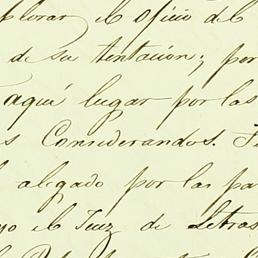 plorar el oficio del
de su tentacion; por
aquí lugar por las
Considerandos.
alegado por las pa
yo el Juez de Letras